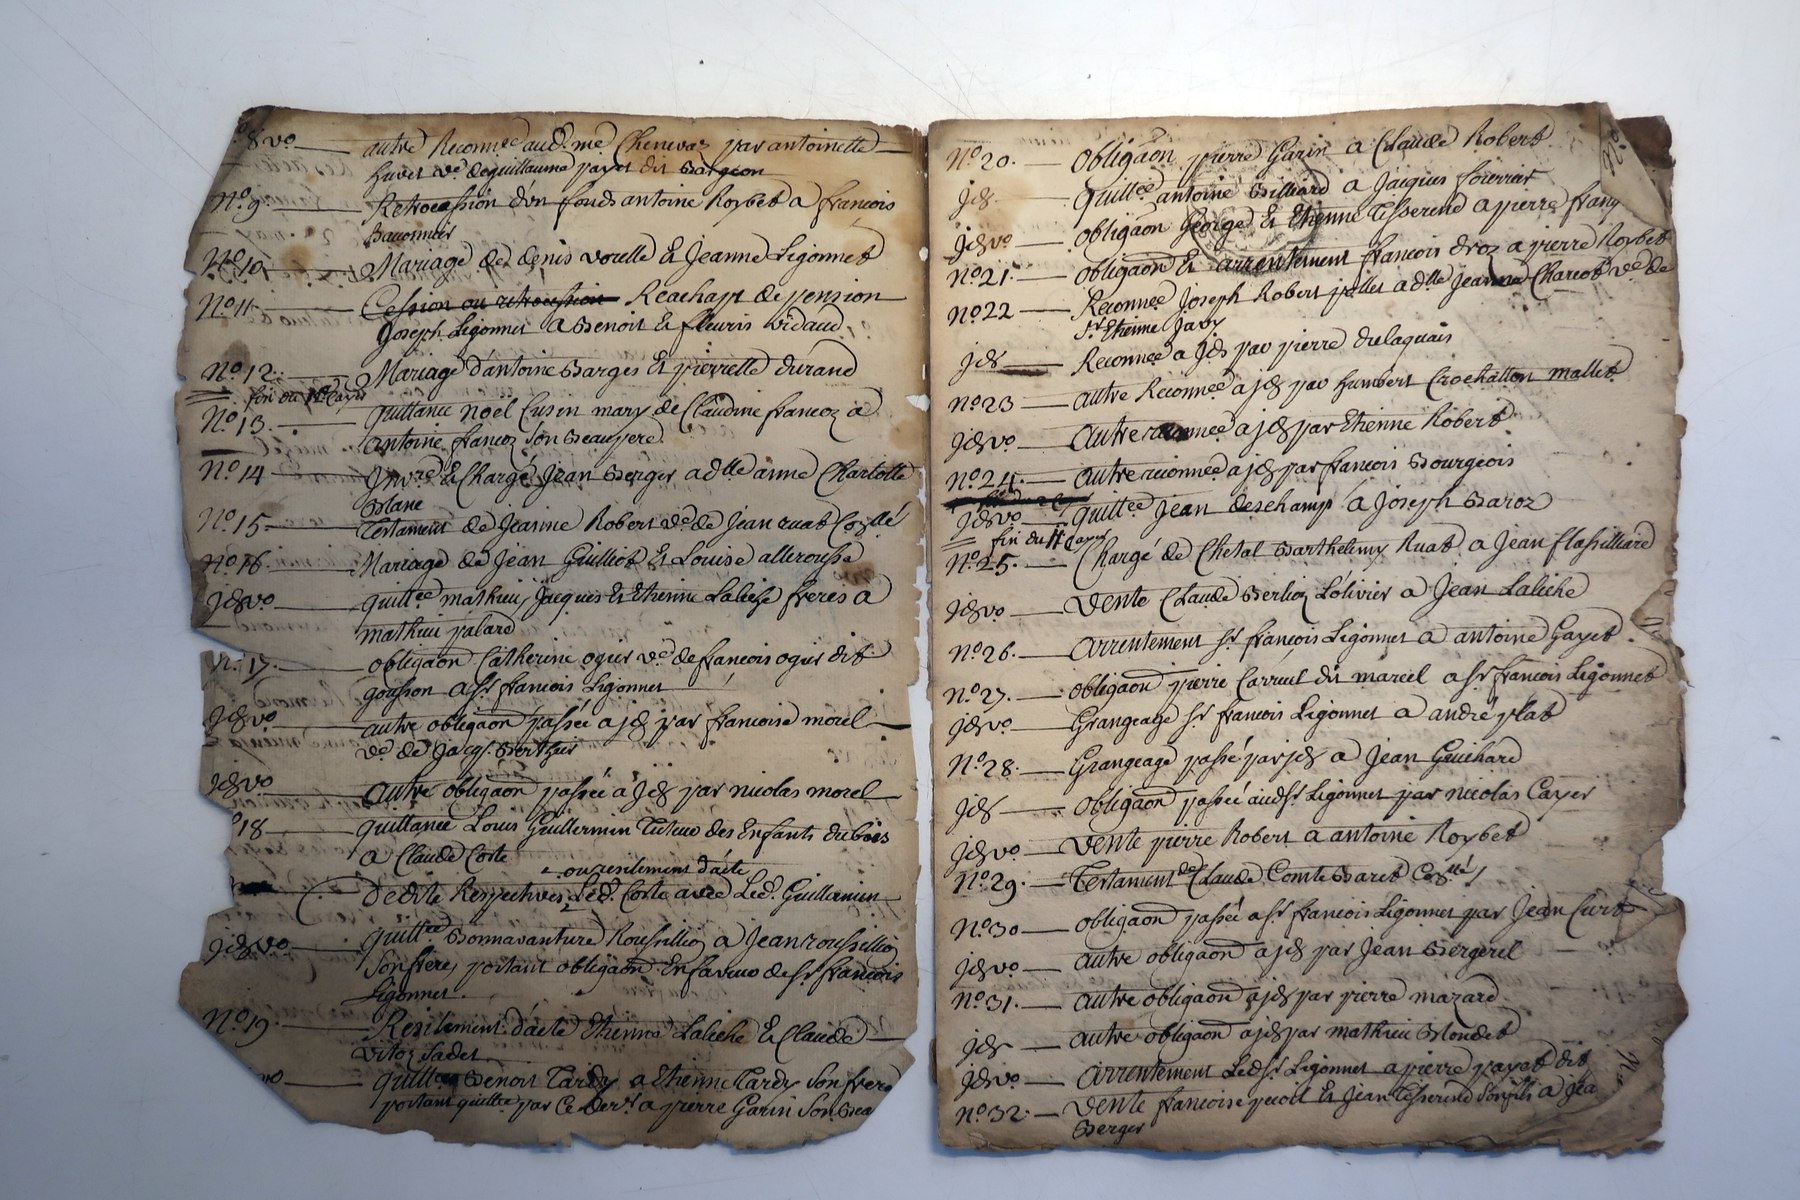 8 vo autre Reconnee audt me Chenevaz par antoinette
huvet ve de guillaume payet dit
No 9 Retrocession d'un fonds antoine Roybet a francois
Baconnier
No 10 Mariage de denis vorelle et Jeanne Ligonnet
No 11 Cession ou retrocession Reachapt de pension
Joseph Ligonnet a Benoit et fleuris vidaud
No 12 Mariage d'antoine Barges et pierrette durand
fin du 1er Cayer
No 13 quittance noel Cusin mary de Claudine francoz a
antoine francoz son Beaupere
No 14 et Chargé Jean Berger a dlle anne Charlotte
Blanc
No 15 Testament de Jeanne Robert ve de Jean ruat
No 16 Mariage de Jean Guilliot et Louise allerousse
jd vo quittee mathieu, Jacques et Etienne Laliche freres a
mathieu palard
No 17 obligaon Catherine ogier ve de francois ogier dit
gousson a sr francois Ligonnet
jd vo autre obligaon passée a jd par francoise morel
ve de Jacqs Berthier
jd vo autre obligaon passée a jd par nicolas morel
18 quittance Louis Guillermin Tuteur des Enfants dubois
a Claude Coste
ou resilement d'acte
Dedite Respectives Led. Coste avec Led. Guillermin
jd vo quittee Bonnavanture Roussillion a Jean roussillion
son frere, portant obligaon En faveur de sr francois
Ligonnet.
No 19 Resilement d'acte Etienne Laliche et Claude
vitoz
vo quittee Benoit Tardy a Etienne Tardy son frere
portant quittee par Ce dern. a pierre Garin son Bea
No 20. obligaon pierre Garin a Claude Robert
jd. quittee antoine Billiard a Jacques fourrier
jd vo obligaon George et Etienne Tisserend a pierre franç
No 21. obligaon et arrentement francois droz a pierre Roybet
No 22 Reconnee Joseph Robert pallet a dlle Jeanne Charcot ve de
sr Etienne Javy
jd Reconnee a jd par pierre delaquais
No 23 autre Reconnee a jd par humbert Crochatton mallet
jd vo autre reconnee a jd par Etienne Robert
No 24. autre reconnee a jd par francois Bourgeois
jd vo quittee Jean deschamp a Joseph Baroz
fin du II Cayer
No 25. Chargé de Chetal Barthelemy Ruat a Jean flassilliard
jd vo vente Claude Berlioz Lolivier a Jean Laliche
No 26. arrentement sr francois Ligonnet a antoine Gayet
No 27. obligaon pierre Carruel dit marcel a sr francois Ligonnet
jd vo Grangeage sr francois Ligonnet a andré plat
No 28. Grangeage passé par jd a Jean Guichard
jd obligaon passée audsr Ligonnet par nicolas Cayer
jd vo vente pierre Robert a antoine Roybet
No 29. Testament de Claude Comte Baret
No 30 obligaon passée a sr francois Ligonnet par Jean Curt
jd vo autre obligaon a jd par Jean Bergeret
No 31. autre obligaon a jd par pierre mazard
jd autre obligaon a jd par mathieu Blondet
jd vo arrentement Ledsr Ligonnet a pierre payet dit
No 32. vente francoise picot et Jean Tisserend son fils a Jea
Berger